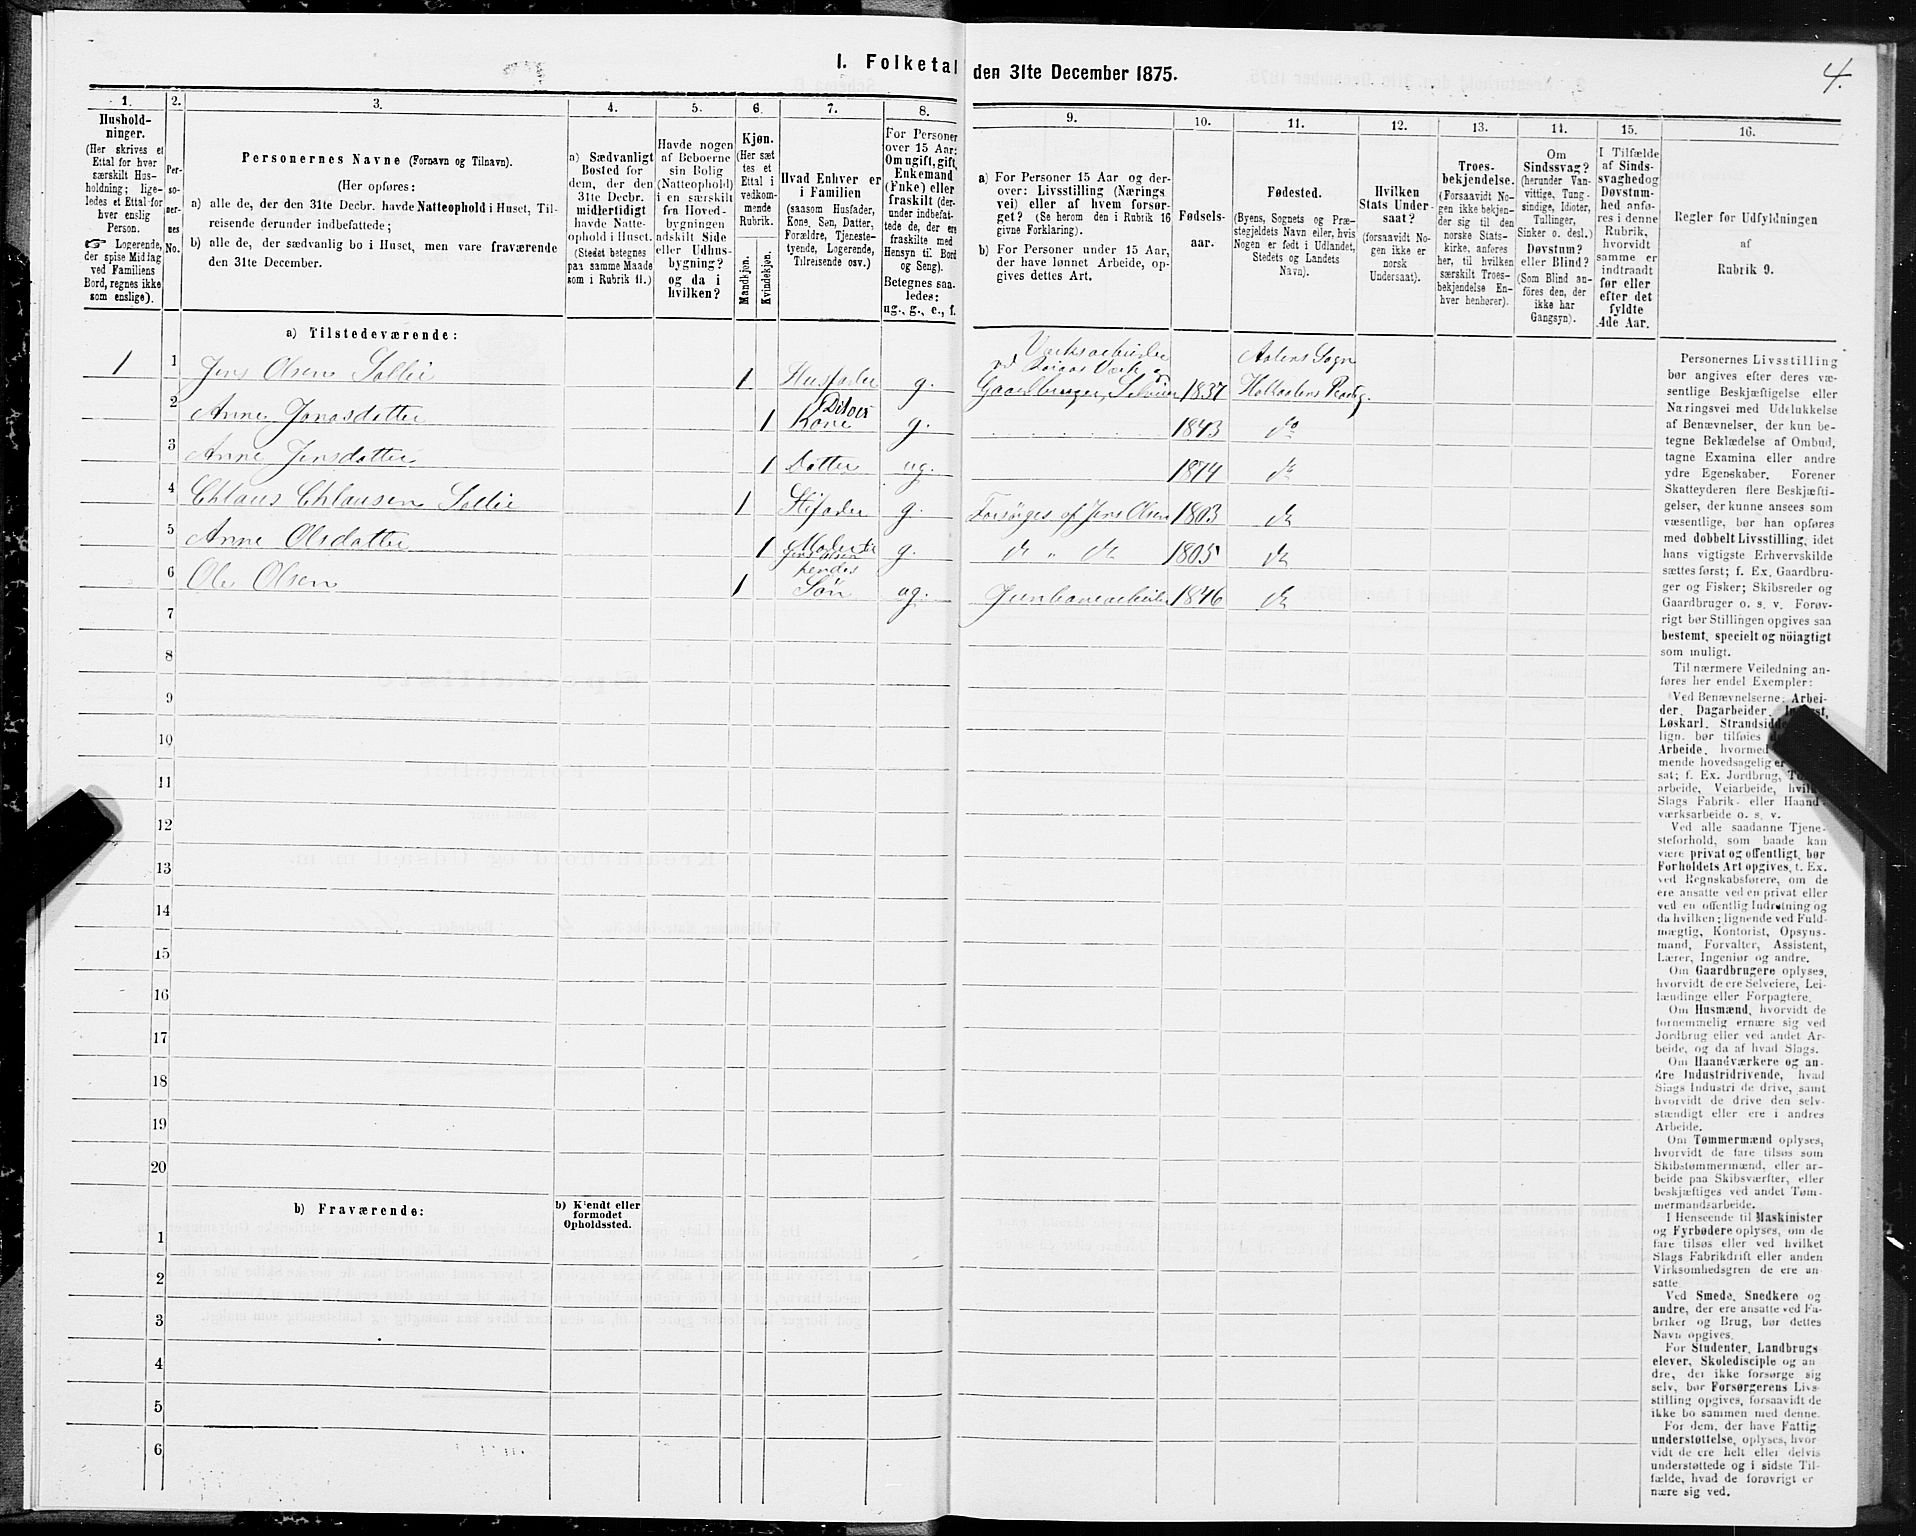 I. Folketal den 31te December 1875.
4.
1.
Hushold-
ninger.
(Her skrives et
Ettal for hver
særskilt Hus-
holdning; lige-
ledes et Ettal for
hver enslig
Person.
☞ Logerende,
der spise Middag
ved Familiens
Bord, regnes ikke
som enslige).
2.
Per-
so-
ner-
nes
No.
3.
Personernes Navne (Fornavn og Tilnavn).
(Her opføres:
a) alle de, der den 31te Decbr. havde Natteophold i Huset, Til-
reisende derunder indbefattede;
b) alle de, der sædvanlig bo i Huset, men vare fraværende
den 31te December.
4.
a) Sædvanligt
Bosted for
dem, der den
31te Decbr.
midlertidigt
havde Natte-
ophold i Huset.
(Stedet betegnes
paa samme Maade
som i Rubrik 11.)
5.
Havde nogen
af Beboerne
sin Bolig
(Natteophold)
i en særskilt
fra Hoved-
bygningen
adskilt Side
eller Udhus-
bygning?
og da i
hvilken?
6.
Kjøn.
(Her sæt
tes et
Ettal i
vedkom-
mende
Rubrik.
Mandkjøn.
Kvindekjøn.
7.
Hvad Enhver er
i Familien
(saasom Husfader,
Kone, Søn, Datter,
Forældre, Tjeneste-
tyende, Logerende,
Tilreisende osv.)
8.
For Personer
over 15 Aar:
Om ugift, gift,
Enkemand
(Enke) eller
fraskilt (der-
under indbefat-
tede de, der ere
fraskilte med
Hensyn til Bord
og Seng).
Betegnes saa-
ledes:
ug., g., e., f.
9.
a) For Personer 15 Aar og der-
over: Livsstilling (Nærings
vei) eller af hvem forsør-
get? (Se herom den i Rubrik 16
givne Forklaring).
b) For Personer under 15 Aar,
der have lønnet Arbeide, op-
gives dettes Art.
10.
Fødsels-
aar.
11.
Fødested.
(Byens, Sognets og Præ-
stegjeldets Navn eller, hvis
Nogen er født i Udlandet,
Stedets og Landets
Navn).
12.
Hvilken
Stats Under-
saat?
(forsaavidt No-
gen ikke er
norsk
Undersaat).
13.
Troes-
bekjendelse.
(Forsaavidt No-
gen ikke bekjen-
der sig til den
norske Stats-
kirke, anføres
her, til hvilken
særskilt Troes-
bekjendelse En-
hver henhører).
14.
Om
Sindssvag?
(herunder Van-
vittige, Tung-
sindige, Idioter,
Tullinger,
Sinker o. desl.)
Døvstum?
eller Blind?
(Som Blind an-
føres den, der
ikke har
Gangsyn).
15.
I Tilfælde
af Sinds-
svaghed og
Døvstum-
hed anfø-
res i denne
Rubrik,
hvorvidt
samme er
indtraadt
før eller
efter det
fyldte
4de Aar.
16.
Regler for Udfyldningen
af
Rubrik 9.
a) Tilstedeværende:
1 1 Jens Olsen Sollie 1 Husfader g. Værksarbeider ved Røraas Værk og Gaardbruger, Selveier 1837 Aalens Sogn Holtaalens Præstg.
2 Anne Jonasdatter 1 Kone g. 1843 do
3 Anne Jensdatter 1 Datter ug. 1874 do
4 Chlaus Chlausen Sollie 1 Stifader g. Forsørges af Jens Olsen 1803 do
5 Anne Olsdatter 1 Moder til Jens Olsen g. do " do 1805 do
6 Ole Olsen 1 hendes Søn ug. Jernbanearbeider 1846 do
7
8
9
10
11
12
13
14
15
16
17
18
19
20
b) Fraværende:
b) Kjendt eller
formodet
Opholdssted.
1
2
3
4
5
6
Personernes Livsstilling
bør angives efter deres væ-
sentlige Beskjæftigelse eller
Næringsvei med Udelukkelse
af Benævnelser, der kun be-
tegne Beklædelse af Ombud,
tagne Examina eller andre
ydre Egenskaber. Forener
Skatteyderen flere Beskjæfti-
gelser, der kunne ansees som
væsentlige, bør han opføres
med dobbelt Livsstilling, idet
hans vigtigste Erhvervskilde
sættes først; f. Ex. Gaardbru-
ger og Fisker; Skibsreder og
Gaardbruger o. s. v. Forøv-
rigt bør Stillingen opgives saa
bestemt, specielt og nöiagtigt
som muligt.
Til nærmere Veiledning an-
føres her endel Exempler:
Ved Benævnelserne Arbei-
der, Dagarbeider,
Løskarl, Strandsidder
lign. bør tilføies
Arbeide, hvormed
mende hovedsagelig er
sat; f. Ex. Jordbrug,
arbeide, Veiarbeide,
Slags Fabrik- eller Haand-
værksarbeide o. s. v.
Ved alle saadanne Tjene-
steforhold, som baade kan
være privat og offentligt, bør
Forholdets Art opgives, f. Ex.
ved Regnskabsførere, om de
ere ansatte ved en privat eller
ved en offentlig Indretning og
da hvilken; lignende ved Fuld-
mægtig, Kontorist, Opsyns-
mand, Forvalter, Assistent,
Lærer, Ingeniør og andre.
Om Gaardbrugere oplyses,
hvorvidt de ere Selveiere, Lei-
lændinge eller Forpagtere.
Om Husmænd, hvorvidt de
fornemmelig ernære sig ved
Jordbrug eller ved andet Ar-
beide, og da af hvad Slags.
Om Haandværkere og an-
dre Industridrivende, hvad
Slags Industri de drive, samt
hvorvidt de drive den selv-
stændigt eller ere i andres
Arbeide.
Om Tømmermænd oplyses,
hvorvidt de fare tilsøs som
Skibstømmermænd, eller ar-
beide paa Skibsværfter, eller
beskjæftiges ved andet Tøm-
mermandsarbeide.
I Henseende til Maskinister
og Fyrbødere oplyses, om de
fare tilsøs eller ved hvilket
Slags Fabrikdrift eller anden
Virksomhedsgren de ere an-
satte.
Ved Smede, Snedkere og
andre, der ere ansatte ved Fa-
briker og Brug, bør dettes
Navn opgives.
For Studenter, Landbrugs
elever, Skoledisciple og an
dre, der ikke forsørge sig
selv, bør Forsørgerens Livs-
stilling opgives, forsaavidt de
ikke bo sammen med denne.
For dem, der have Fattig
understøttelse, oplyses, hvor
vidt de ere helt eller delvis
understøttede og i sidste Til-
fælde, hvad de forøvrigt er
nære sig ved.